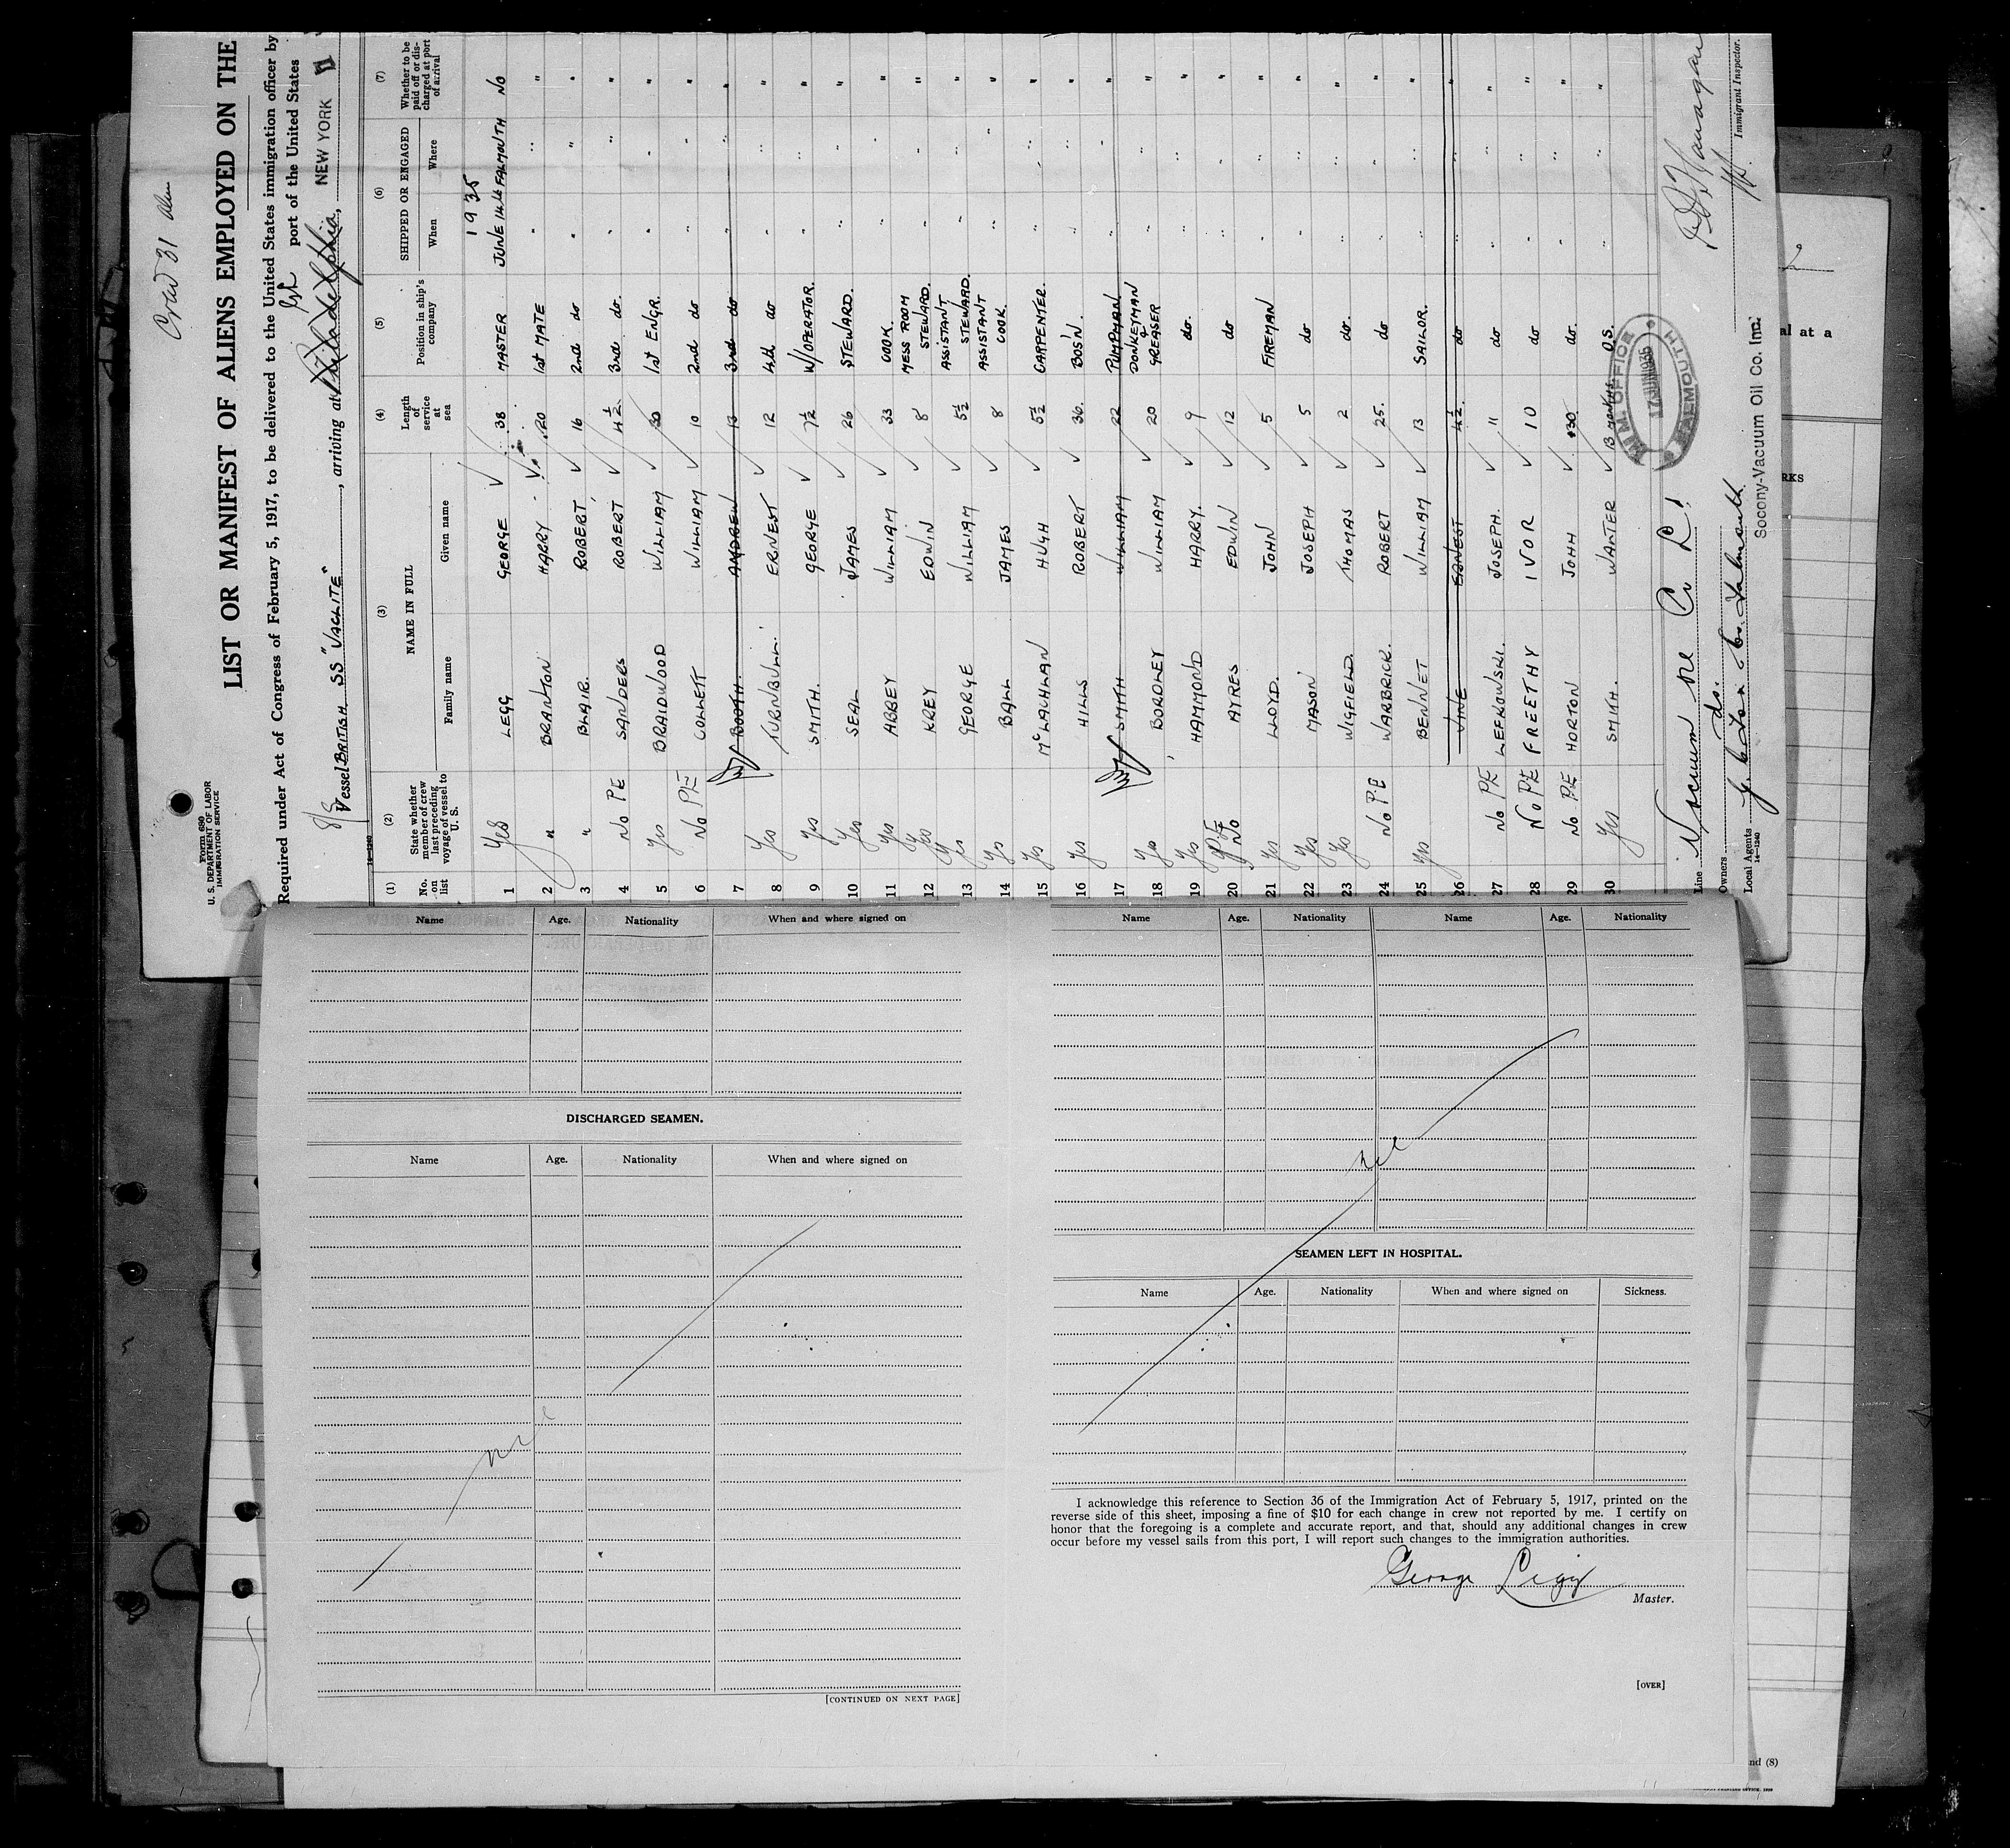 Crew 31
Form 680
U. S. DEPARTMENT OF LABOR
IMMIGRATION SERVICE
LIST OR MANIFEST OF ALIENS EMPLOYED ON THE
Required under Act of Congress of February 5, 1917, to be delivered to the United States immigration officer by
port of the United States
Vessel BRITISH SS "VACLITE", arriving at Philadelphia, NEW YORK
14—1240
(1) (2) (3) (4) (5) (6) (7)
No. on list
State whether member of crew last preceding voyage of vessel to U. S.
NAME IN FULL
Family name Given name
Length of service at sea
Position in ship's company
SHIPPED OR ENGAGED
When Where
Whether to be paid off or discharged at port of arrival
1935
1 Yes LEGG GEORGE 38 MASTER JUNE 14th FALMOUTH No
2 " BRANTON HARRY 20 1st MATE " " "
3 " BLAIR. ROBERT 16 2nd do " " "
4 No PE SANDERS ROBERT 4½ 3rd do. " " "
5 Yes BRAIDWOOD WILLIAM 30 1st ENGR. " " "
6 No PE COLLETT WILLIAM 10 2nd do " " "
7 BOOTH. ANDREW 13 3rd do " " "
8 Yes TURNBULL ERNEST 12 4th do " " "
9 Yes SMITH. GEORGE 7½ W/OPERATOR. " " "
10 Yes SEAL JAMES 26 STEWARD. " " "
11 Yes ABBEY WILLIAM 33 COOK. " " "
12 Yes KREY EDWIN 8 MESS ROOM STEWARD. " " "
13 Yes GEORGE WILLIAM 5½ ASSISTANT STEWARD. " " "
14 Yes BALL JAMES 8 ASSISTANT COOK. " " "
15 Yes McLACHLAN HUGH 5½ CARPENTER. " " "
16 Yes HILLS ROBERT 36. BOSN. " " "
17 SMITH WILLIAM 22 PUMPMAN " " "
18 Yes BORDLEY WILLIAM 20 DONKEYMAN & GREASER " " "
19 Yes HAMMOND HARRY. 9 do. " " "
20 P.E No AYRES EDWIN 12 do " " "
21 Yes LLOYD. JOHN 5 FIREMAN " " "
22 Yes MASON JOSEPH 5 do " " "
23 Yes WIGFIELD. THOMAS 2 do. " " "
24 No P.E WARBRICK. ROBERT 25. do " " "
25 Yes BENNET WILLIAM 13 SAILOR. " " "
26 VINE ERNEST 4½. do " " "
27 No PE LEEKOWSKI. JOSEPH. " do " " "
28 No PE FREETHY IVOR 10 do " " "
29 No PE HORTON JOHN 30 do. " " "
30 Yes SMITH. WALTER 13 MONTHS O.S. " " "
Line Vacuum
Owners do.
Local Agents Falmouth
14—1240
Socony-Vacuum Oil Co. Inc.
M.M. OFFICE
17 JUN 1935
FALMOUTH
Immigrant Inspector.
al at a
RKS
2
Name Age. Nationality When and where signed on
DISCHARGED SEAMEN.
Name Age. Nationality When and where signed on
nil
[CONTINUED ON NEXT PAGE]
Name Age. Nationality Name Age. Nationality
nil
SEAMEN LEFT IN HOSPITAL.
Name Age. Nationality When and where signed on Sickness.
I acknowledge this reference to Section 36 of the Immigration Act of February 5, 1917, printed on the
reverse side of this sheet, imposing a fine of $10 for each change in crew not reported by me. I certify on
honor that the foregoing is a complete and accurate report, and that, should any additional changes in crew
occur before my vessel sails from this port, I will report such changes to the immigration authorities.
George Legg
Master.
[OVER]
nd (8)